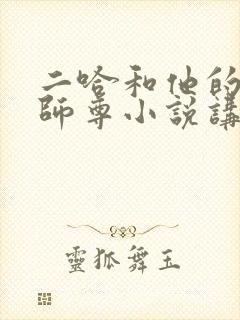 二哈和他的
師尊小說講
靈狐舞玉